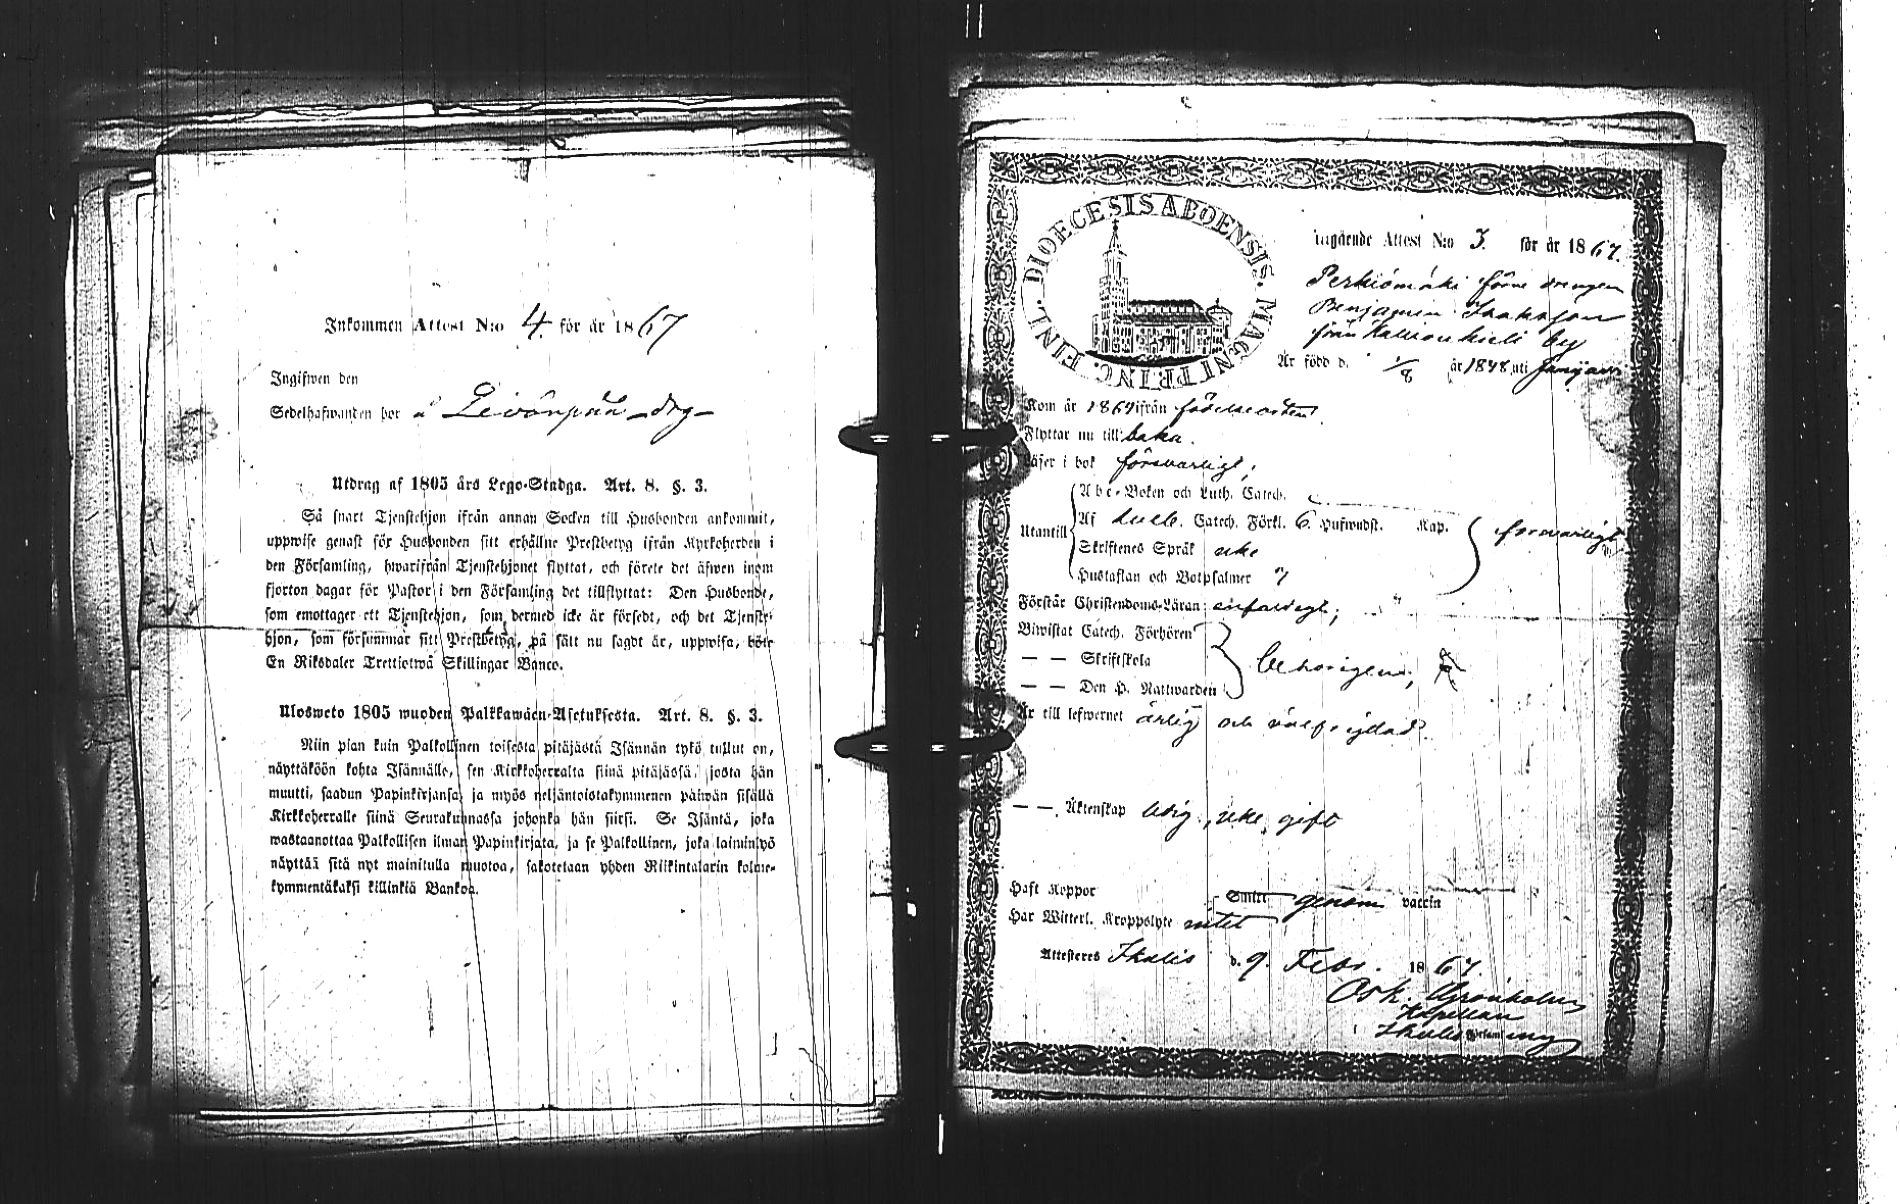 Inkommen Attest N:o 4. för år 1867
Ingifwen den
Sedelhafwanden bor å
Utdrag af 1805 års Lego-Stadga. Art. 8. §. 3.
Så snart Tjenstehjon ifrån annan Socken till Husbonden ankommit,
uppwise genast för Husbonden sitt erhållne Prestbetyg ifrån Kyrkoherden i
den Församling, hwarifrån Tjenstehjonet flyttat, och förete det äfwen inom
fjorton dagar för Pastor i den Församling det tillflyttat: Den Husbonde,
som emottager ett Tjenstehjon, som dermed icke är försedt, och det Tjenste-
hjon, som försummar sitt Prestbetyg, på sätt nu sagdt är, uppwisa, böte
En Riksdaler Trettiotwå Skillingar Banco.
Ulosweto 1805 wuoden Palkkawäen-Asetuksesta. Art. 8. §. 3.
Niin pian kuin Palkollinen toisesta pitäjästä Isännän tykö tullut on,
näyttäköön kohta Isännälle, sen Kirkkoherralta siinä pitäjässä, josta hän
muutti, saadun Papinkirjansa, ja myös neljäntoistakymmenen päiwän sisällä
Kirkkoherralle siinä Seurakunnassa johonka hän siirsi. Se Isäntä, joka
wastaanottaa Palkollisen ilman Papinkirjata, ja se Palkollinen, joka laiminlyö
näyttää sitä nyt mainitulla muotoa, sakotetaan yhden Riikintalarin kolme-
kymmentäkaksi killinkiä Bankoa.
FINL. DIOECESIS ABOENSIS. MAGNI PRINC.
Utgående Attest N:o 3. för år 1867.
Perkiömäki förre drengen
Benjamin Isaksson
från by
Är född d. 1/8 år 1848 uti
Kom år 1864 ifrån födelseorten
Flyttar nu till baka.
Läser i bok försvarligt;
Abc-Boken och Luth. Catech.
Utantill Af Catech. Förkl. 6. Hufwudst. Kap. försvarligt
Skriftenes Språk icke
Hustaflan och Botpsalmer "
Förstår Christendoms-Läran: enfaldigt;
Biwistat Catech. Förhören
— — Skriftskola behörigen;
— — Den H. Nattwarden
Är till lefwernet ärlig och välfrejdad.
— — Äktenskap ledig, icke gift
Haft Koppor Smitt genom vaccin
Har Witterl. Kroppslyte intet
Attesteres Ikalis d. 9. Febr. 1867.
Osk. Grönholm
Kapellan
i Ikalis Församling